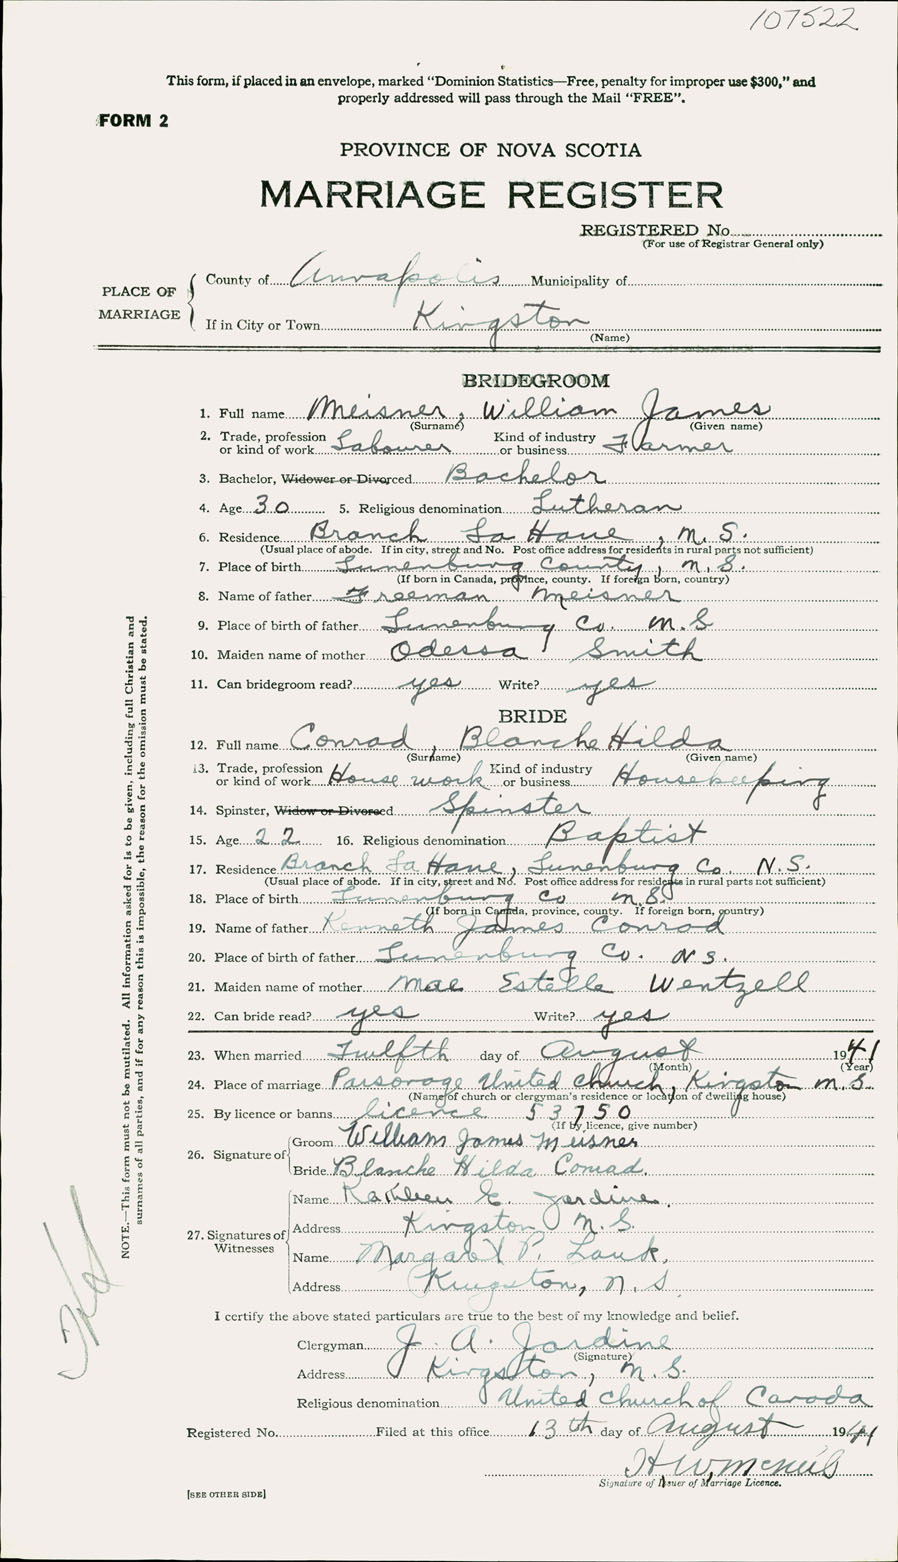 107522
This form, if placed in an envelope, marked “Dominion Statistics—Free, penalty for improper use $300,” and
properly addressed will pass through the Mail “FREE”.
FORM 2
PROVINCE OF NOVA SCOTIA
MARRIAGE REGISTER
REGISTERED No.
(For use of Registrar General only)
PLACE OF MARRIAGE
County of Annapolis Municipality of
If in City or Town Kingston
(Name)
BRIDEGROOM
1. Full name Meisner, William James
(Surname) (Given name)
2. Trade, profession or kind of work Labourer Kind of industry or business Farmer
3. Bachelor, Widower or Divorced Bachelor
4. Age 30 5. Religious denomination Lutheran
6. Residence Branch La Have, N.S.
(Usual place of abode. If in city, street and No. Post office address for residents in rural parts not sufficient)
7. Place of birth Lunenburg County, N.S.
(If born in Canada, province, county. If foreign born, country)
8. Name of father Freeman Meisner
9. Place of birth of father Lunenburg Co. N.S
10. Maiden name of mother Odessa Smith
11. Can bridegroom read? yes Write? yes
BRIDE
12. Full name Conrad, Blanche Hilda
(Surname) (Given name)
13. Trade, profession or kind of work House work Kind of industry or business Housekeeping
14. Spinster, Widow or Divorced Spinster
15. Age 22 16. Religious denomination Baptist
17. Residence Branch La Have, Lunenburg Co. N.S.
(Usual place of abode. If in city, street and No. Post office address for residents in rural parts not sufficient)
18. Place of birth Lunenburg Co N.S.
(If born in Canada, province, county. If foreign born, country)
19. Name of father Kenneth James Conrad
20. Place of birth of father Lunenburg Co. N S.
21. Maiden name of mother Mae Estella Wentzell
22. Can bride read? yes Write? yes
23. When married Twelfth day of August 1941
(Month) (Year)
24. Place of marriage Parsonage United church, Kingston N.S.
(Name of church or clergyman's residence or location of dwelling house)
25. By licence or banns licence 53750
(If by licence, give number)
26. Signature of
Groom William James Meisner
Bride Blanche Hilda Conrad.
27. Signatures of Witnesses
Name Kathleen E. Jardine.
Address Kingston N.S.
Name Margaret P.
Address Kingston, N.S
I certify the above stated particulars are true to the best of my knowledge and belief.
Clergyman J. A. Jardine
(Signature)
Address Kingston, N.S.
Religious denomination United Church of Canada
Registered No. Filed at this office 13th day of August 1941
H W McNeil
Signature of Issuer of Marriage Licence.
[SEE OTHER SIDE]
NOTE.—This form must not be mutilated. All information asked for is to be given, including full Christian and
surnames of all parties, and if for any reason this is impossible, the reason for the omission must be stated.